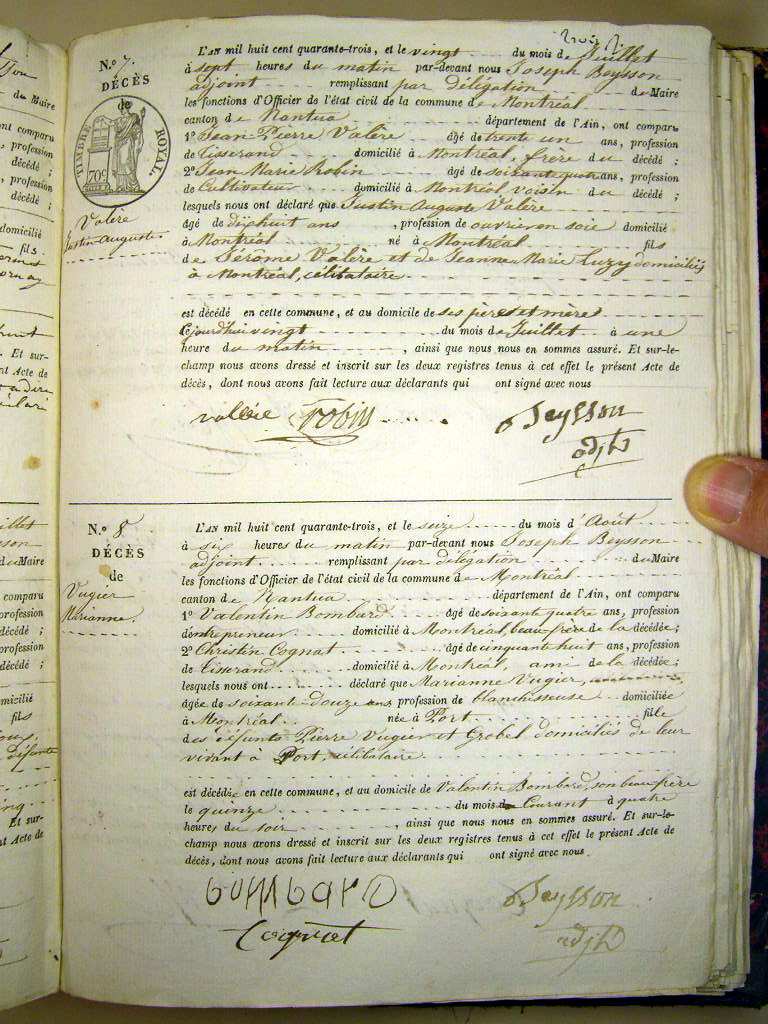 N.º 7.
DÉCÈS
de
TIMBRE ROYAL.
70c
Valère
Justin Auguste.
L'AN mil huit cent quarante-trois, et le vingt du mois de Juillet
à sept heures du matin par-devant nous Joseph Beysson
adjoint remplissant par délégation du Maire
les fonctions d'Officier de l'état civil de la commune de Montréal
canton de Nantua département de l'Ain, ont comparu
1º Jean Pierre Valère âgé de trente un ans, profession
de Tisserand domicilié à Montréal, frère du décédé ;
2º Jean Marie Robin âgé de soixante quatre ans, profession
de Cultivateur domicilié à Montréal voisin du décédé ;
lesquels nous ont déclaré que Justin Auguste Valère
âgé de dixhuit ans , profession de ouvrier en soie domicilié
à Montréal né à Montréal fils
de Jérôme Valère et de Jeanne Marie Luzy domiciliés
à Montréal, célibataire
est décédé en cette commune, et au domicile de ses père et mère
cejourd'hui vingt du mois de Juillet à une
heure du matin , ainsi que nous nous en sommes assuré. Et sur-le-
champ nous avons dressé et inscrit sur les deux registres tenus à cet effet le présent Acte de
décès, dont nous avons fait lecture aux déclarants qui ont signé avec nous
vallére Robin Beysson
adjt
N.º 8.
DÉCÈS
de
Vugier
Marianne.
L'AN mil huit cent quarante-trois, et le seize du mois d'Août
à six heures du matin par-devant nous Joseph Beysson
adjoint remplissant par délégation du Maire
les fonctions d'Officier de l'état civil de la commune de Montréal
canton de Nantua département de l'Ain, ont comparu
1º Valentin Bombard âgé de soixante quatre ans, profession
d'entrepreneur domicilié à Montréal, beau frère de la décédée ;
2º Christin Cognat âgé de cinquante huit ans, profession
de tisserand domicilié à Montréal, ami de la décédée ;
lesquels nous ont déclaré que Marianne Vugier,
âgée de soixante-douze ans profession de blanchisseuse domiciliée
à Montréal née à Port fille
des défunts Pierre Vugier et Grobel domiciliés de leur
vivant à Port, célibataire
est décédée en cette commune, et au domicile de Valentin Bombard, son beau frère
le quinze du mois de Courant à quatre
heures du soir , ainsi que nous nous en sommes assuré. Et sur-le-
champ nous avons dressé et inscrit sur les deux registres tenus à cet effet le présent Acte de
décès, dont nous avons fait lecture aux déclarants qui ont signé avec nous
bombard Beysson
Cognat adjt